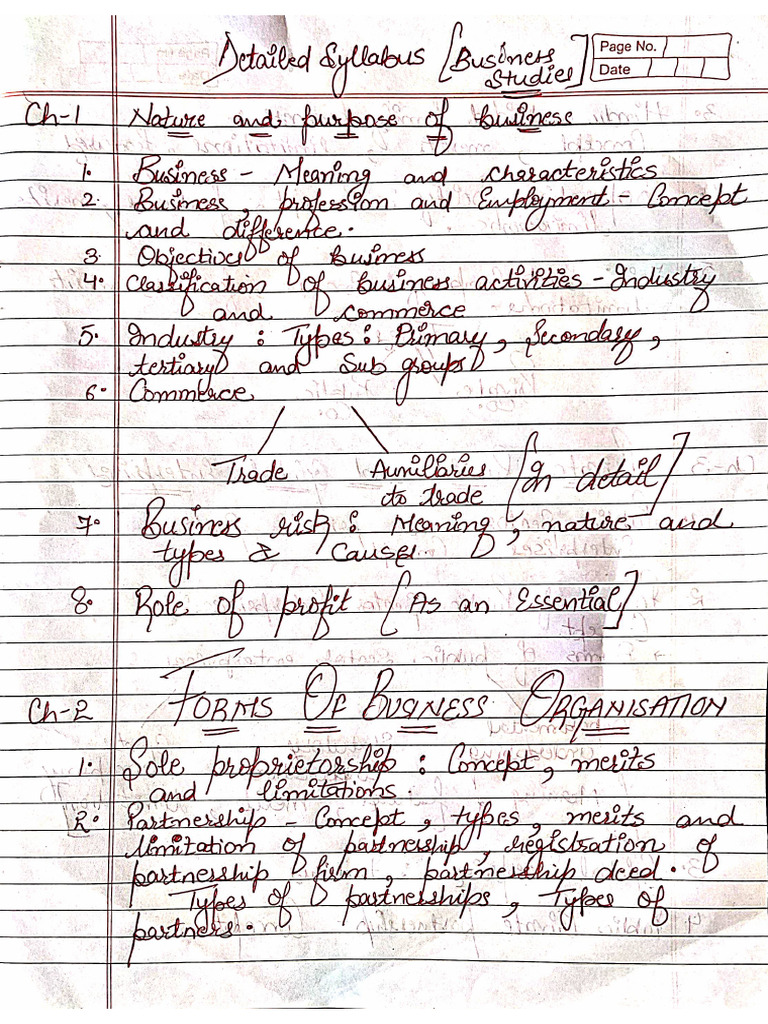 Detailed Syllabus [Business Studies]
Page No.
Date
Ch-1 Nature and purpose of business
1. Business - Meaning and characteristics
2. Business, profession and Employment - Concept
and difference.
3. Objectives of business
4. Classification of business activities - Industry
and commerce
5. Industry : Types : Primary, Secondary,
tertiary and Sub groups
6. Commerce
Trade Auxiliaries to trade [In detail]
7. Business risk : Meaning, nature and
types & Causes
8. Role of profit [As an Essential]
Ch-2 FORMS OF BUSINESS ORGANISATION
1. Sole proprietorship : Concept, merits
and limitations.
2. Partnership - Concept, types, merits and
limitation of partnership, registration of
partnership firm, partnership deed.
Types of partnerships, Types of
partners.